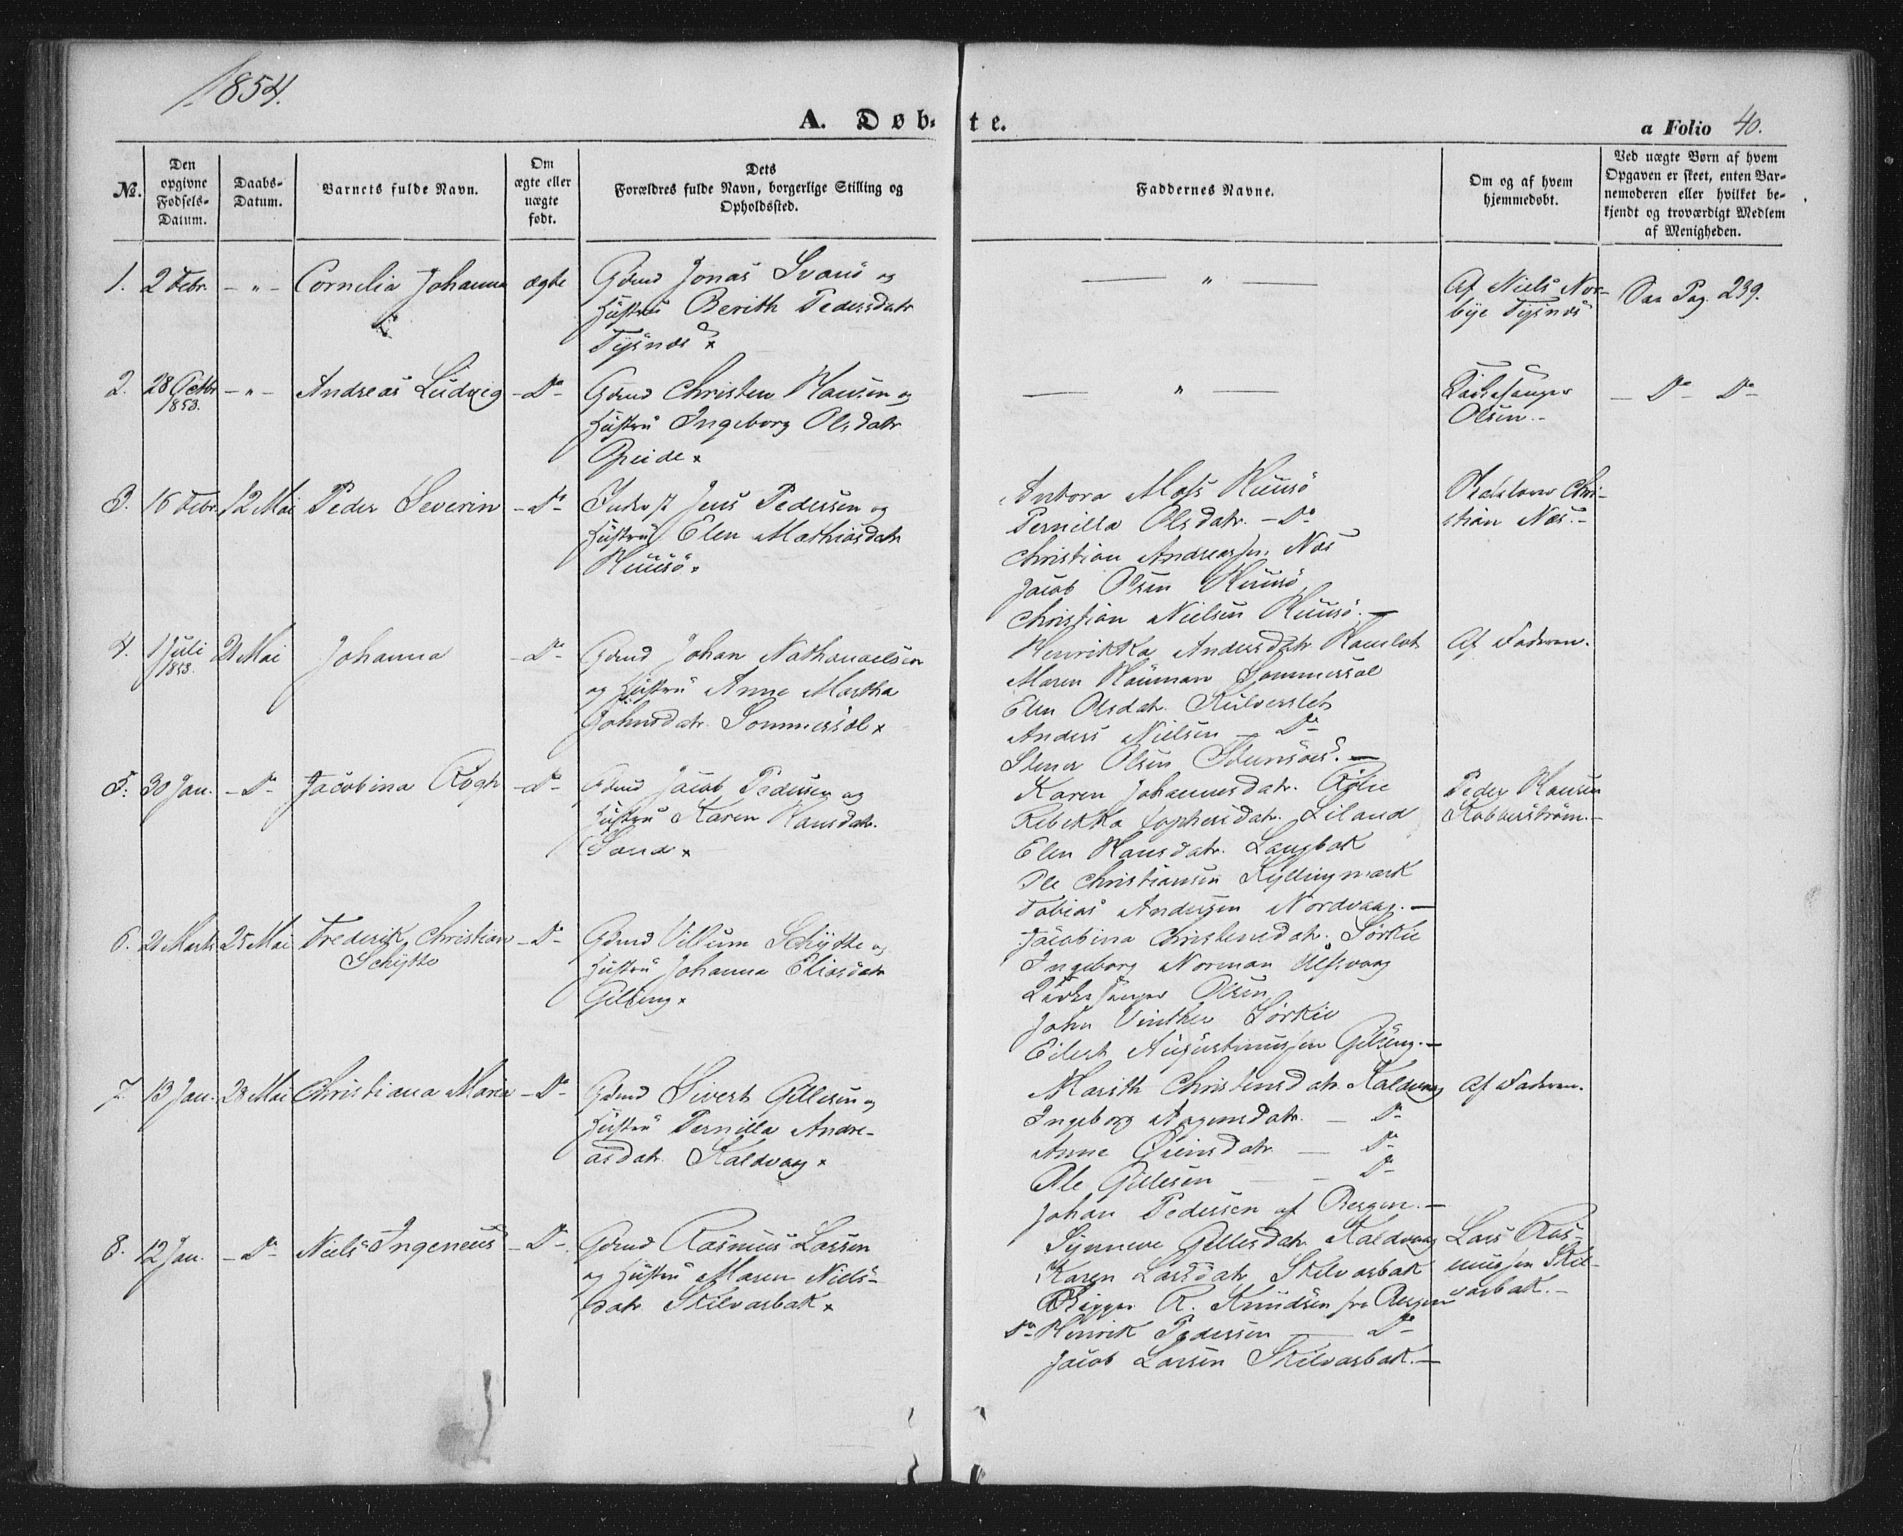 1854.
A. Døb- te.
a Folio 40.
No.
Den opgivne Fødsels-Datum.
Daabs-Datum.
Barnets fulde Navn.
Om ægte eller uægte født.
Dets Forældres fulde Navn, borgerlige Stilling og Opholdssted.
Faddernes Navne.
Om og af hvem hjemmedøbt.
Ved uægte Børn af hvem Opgaven er skeet, enten Barnemoderen eller hvilket bekjendt og troværdigt Medlem af Menigheden.
1. 2 Febr. - " - Cornelia Johanna ægte
Gdmd Jonas Svanø og
Hustru Berith Pedersdatr
Tysnæs x
— " —
Af Niels Nor-
bye Tysnæs
See Pag. 239.
2. 28 Octbr 1853. - " - Andreas Ludvig - Do -
Gdmd Christen Hansen og
Hustru Ingeborg Olsdatr
Opeide x
— " —
Kirkesanger
Olsen. -
- Do - Do -
3. 16 Febr. 12 Mai Peder Severin - Do -
Inderst Jens Pedersen og
Hustru Elen Mathiasdatr
Huusø x
Mass Huusø
Pernilla Olsdatr. - Do
Christian Andreassen Næs
Jacob Olsen Huusø
Christian Nielsen Huusø. -
Chri-
stian Næs. -
4. 1 Juli 1853. 21 Mai Johanna - Do -
Gdmd Johan Nathanaelsen
og Hustru Anne Martha
Johnsdatr. Sommersæl x
Henrikka Andersdatr
Maren Hauman Sommersæl
Elen Olsdatr.
Anders Nielsen - Do
Olsen
Af Faderen.
5. 30 Jan. - Do - Jacobina - Do -
Gdmd Jacob Pedersen og
Hustru Karen Hansdatr.
Sand x
Karen Johannesdatr.
Rebekka Tophesdatr. Leiland
Elen Hansdatr. Langbak
Ole Christiansen Kyllingmark
Tobias Andersen Nordvaag. -
Peder Hansen
6. 21 Marts 25 Mai Frederik Christian
Schytte - Do -
Gdmd Villum Schytte og
Hustru Johanna Eliasdatr
Gilseng x
Jacobina Christensdatr. Sørkie
Ingeborg Norman Ulfsvaag
Kirkesanger Olsen
John Vinther Sørkie
Eilert Augustinussen Gilseng. -
7. 13 Jan. 28 Mai Christiana Maria - Do -
Gdmd Sivert Gillesen og
Hustru Pernilla Andre-
asdatr. Kaldvaag x
Marith Christensdatr Kaldvaag
Ingeborg - Do
Anne - Do
Ole Gillesen - Do
Johan Pedersen af Bergen. -
Af Faderen.
8. 12 Jan. - Do - Niels Ingeneus - Do -
Gdmd Rasmus Larsen
og Hustru Maren Niels-
datr. Skilvasbak x
Synneve Gillesdatr Kaldvaag
Karen Larsdatr Skilvasbak
R. Knudsen fra Bergen
Do Henrik Pedersen - Do
Jacob Larsen Skilvasbak. -
Lars Ras-
mussen Skil-
vasbak. -